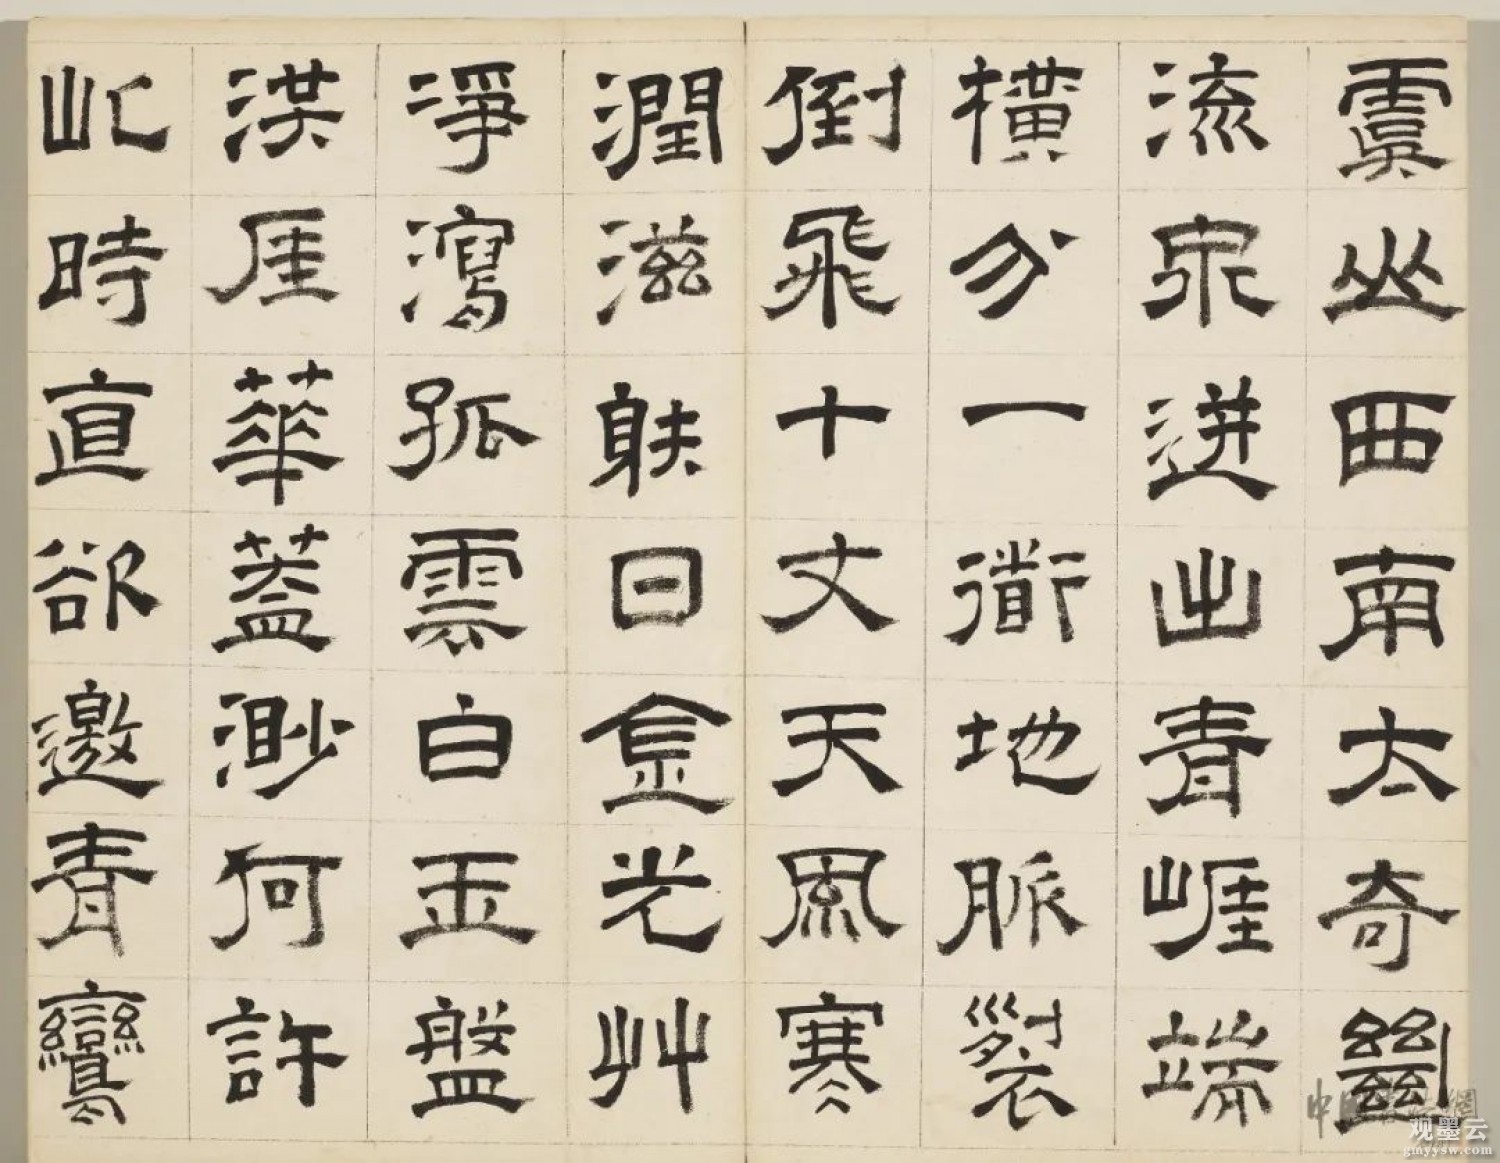 虞丘西南太奇𢇍
流泉迸出青崕端
橫分一衜地脈裂
倒飛十丈天風寒
潤滋䠶日金光艸
淨瀉孤雲白玉盤
洪厓華蓋渺何許
此時直欲邀青鸞
观墨云
gmyysw.com